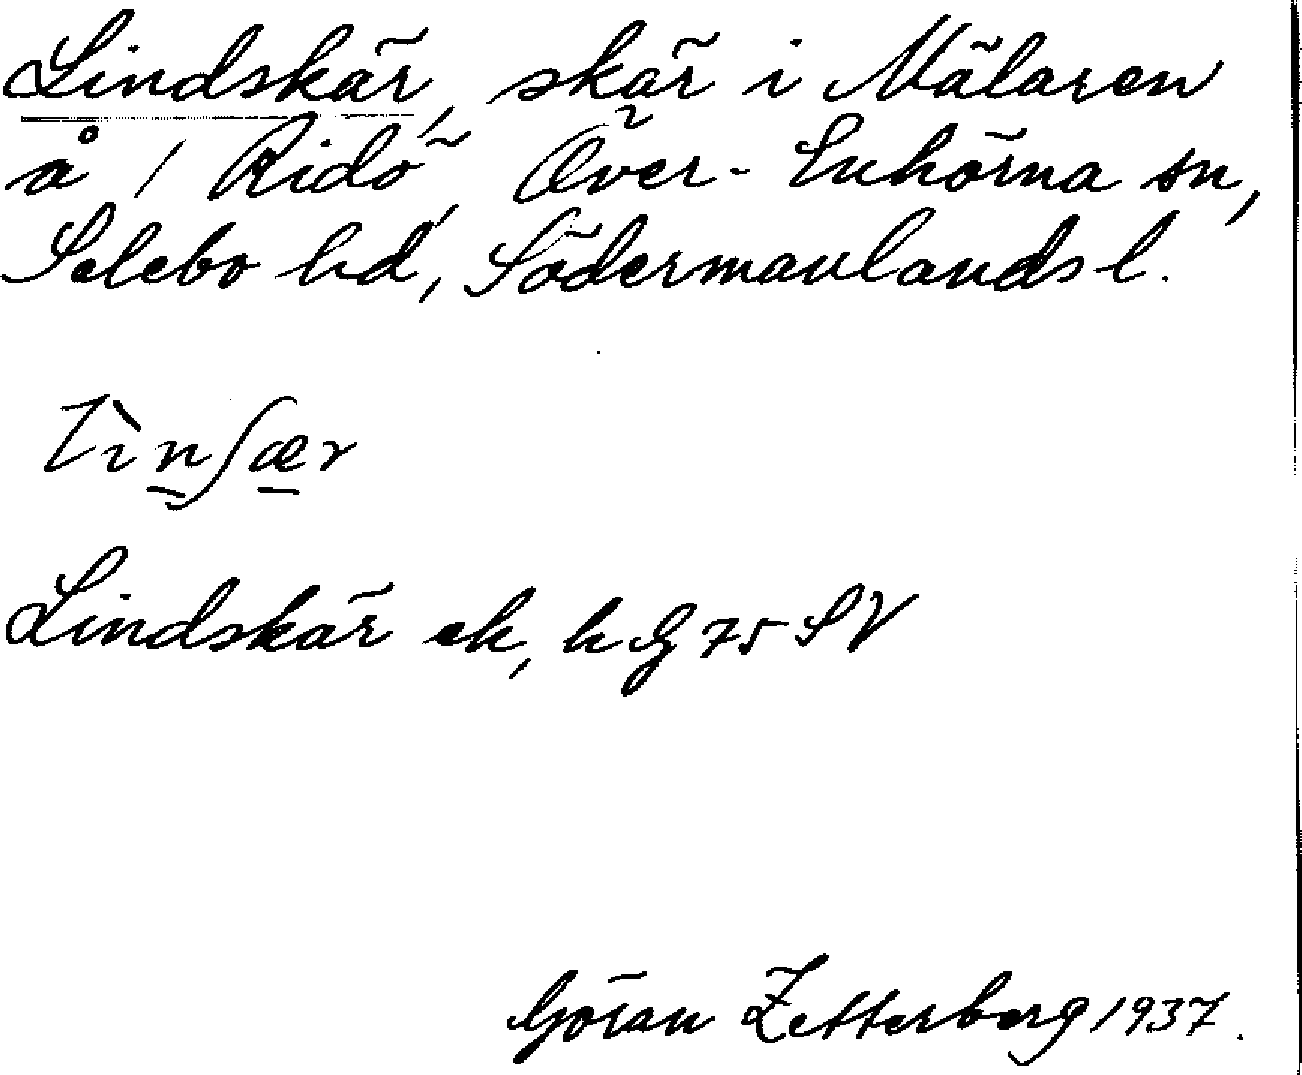 Lindskär, skär i Mälaren
å 1 Ridö, Över-Enhörna sn,
Selebo hd, Södermanlands l.
lìnʃær
Lindskär ek, h G 75 SV
Göran Zetterberg 1937.